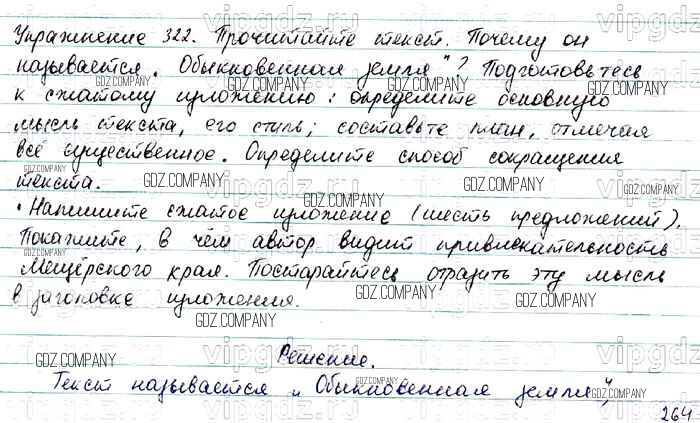 Упражнение 322. Прочитайте текст. Почему он
называется „Обыкновенная земля"? Подготовьтесь
к сжатому изложению: определите основную
мысль текста, его стиль; составьте план, отмечая
всё существенное. Определите способ сокращения
текста.
• Напишите сжатое изложение (шесть предложений).
Покажите, в чём автор видит привлекательность
Мещёрского края. Постарайтесь отразить эту мысль
в заголовке изложения.
Решение.
Текст называется „Обыкновенная земля",
264
vipgdz.ru
GDZ.COMPANY